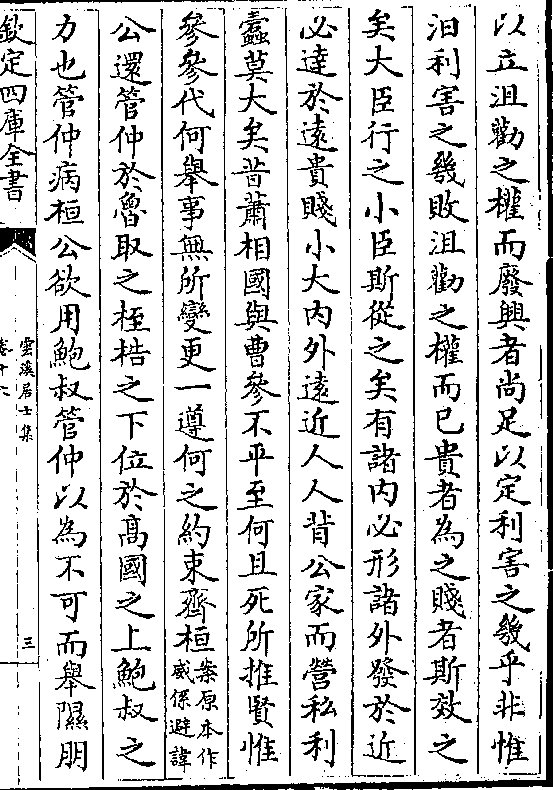 以立沮勸之權而廢興者尚足以定利害之幾乎非惟
汩利害之幾敗沮勸之權而已貴者為之賤者斯效之
矣大臣行之小臣斯從之矣有諸内必形諸外發於近
必達於逺貴賤小大内外逺近人人背公家而營私利
蠧莫大矣昔蕭相國與曹參不平至何且死所推賢惟
參參代何舉事無所變更一遵何之約束齊桓案原本作威係避諱
公還管仲於魯取之桎梏之下位於髙國之上鮑叔之
力也管仲病桓公欲用鮑叔管仲以為不可而舉隰朋
欽定四庫全書
雲溪居士集
卷十六
三